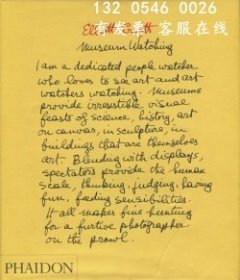 132 0546 0026
有发票 客服在线
Museum Watching
I am a dedicated people watcher
who loves to see art and art
watchers watching. Museums
provide irresistible visual
feasts of science, history, art
on canvas, in sculpture, in
buildings that are themselves
art. Blending with displays,
spectators provide the human
scale, thinking, judging, having
fun, feeding sensibilities.
It all makes fine hunting
for a furtive photographer
on the prowl.
PHAIDON